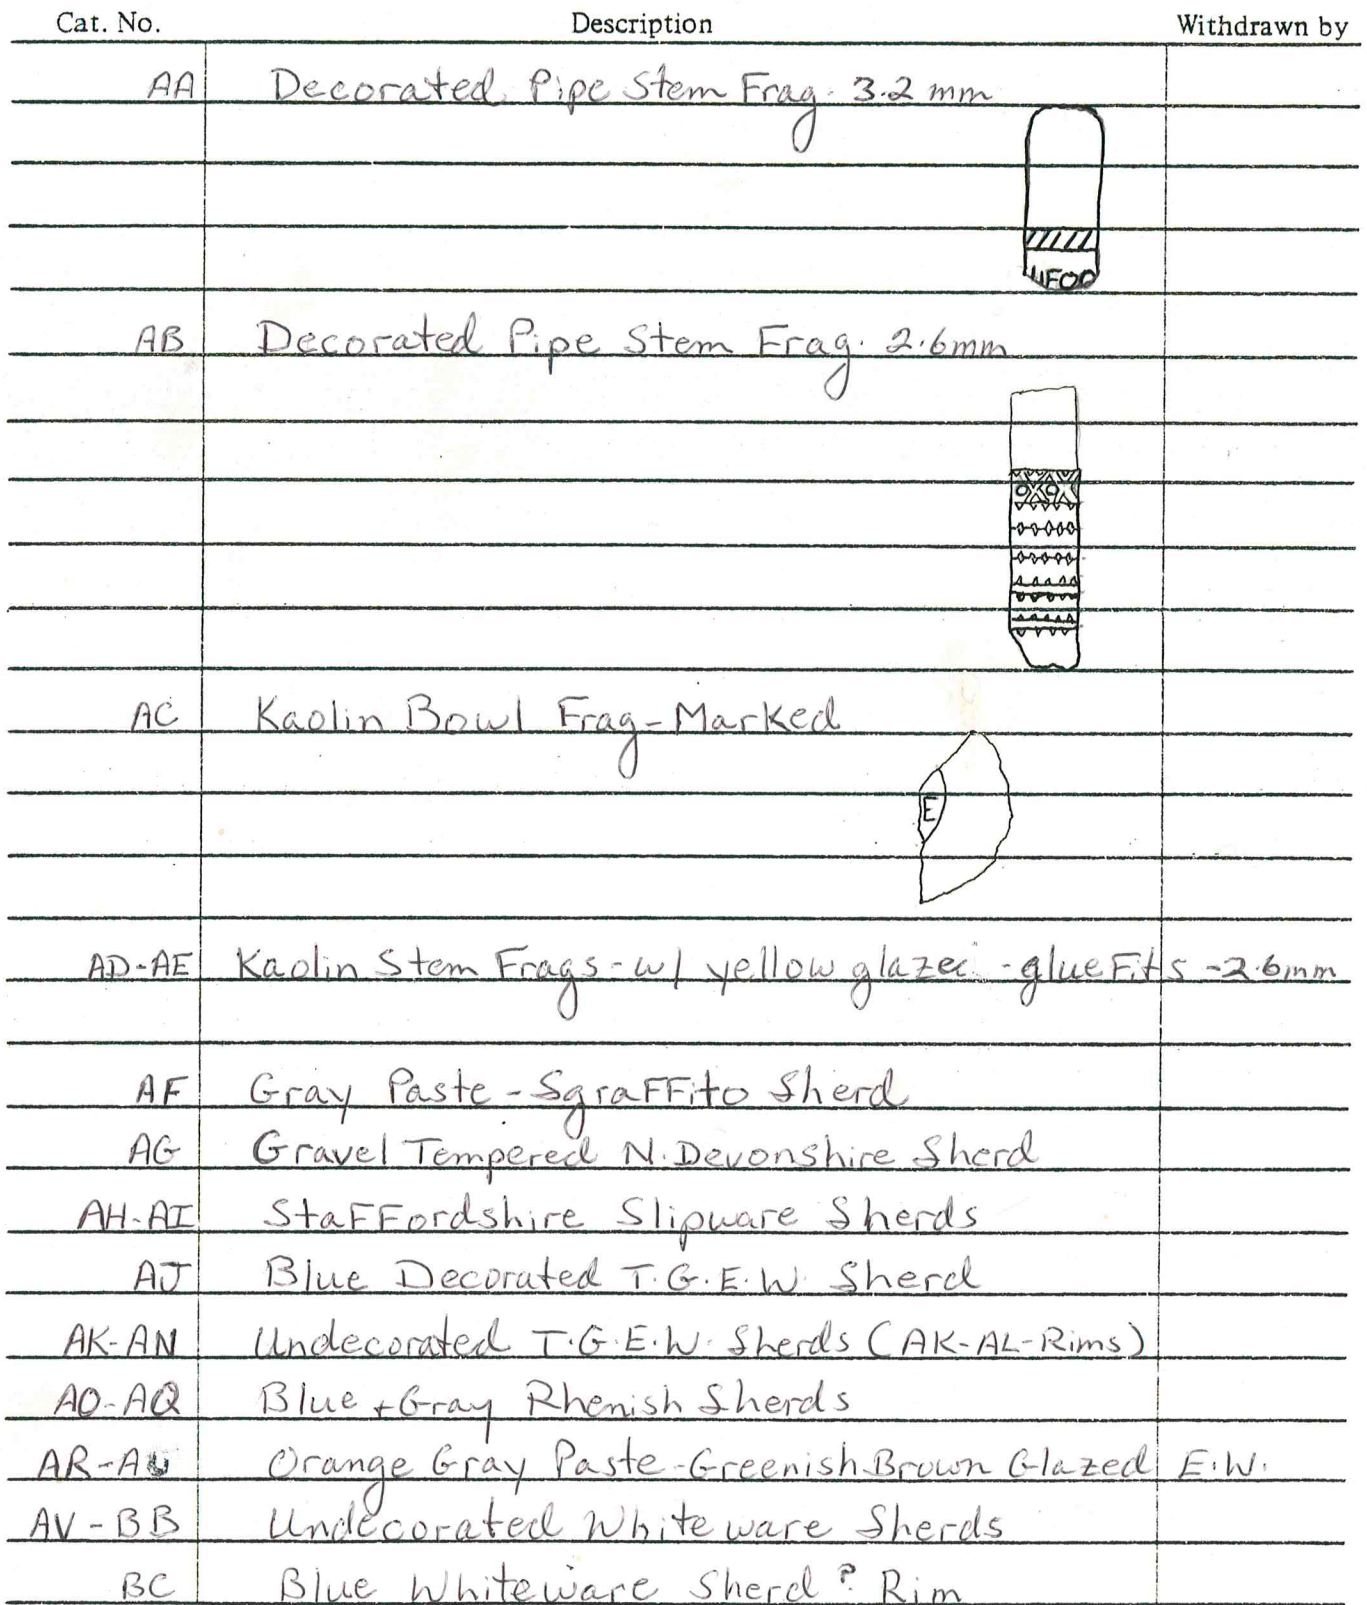 Cat. No. Description Withdrawn by
AA Decorated Pipe Stem Frag. 3.2 mm
AB Decorated Pipe Stem Frag. 2.6mm
AC Kaolin Bowl Frag-Marked
E
AD-AE Kaolin Stem Frags-w/ yellow glaze -glue Fits -2.6mm
AF Gray Paste-SgraFFito Sherd
AG Gravel Tempered N. Devonshire Sherd
AH-AI StaFFordshire Slipware Sherds
AJ Blue Decorated T.G.E.W. Sherd
AK-AN Undecorated T.G.E.W. Sherds (AK-AL-Rims)
AO-AQ Blue + Gray Rhenish Sherds
AR-AU Orange Gray Paste-Greenish Brown Glazed E.W.
AV-BB Undecorated Whiteware Sherds
BC Blue Whiteware Sherd ? Rim